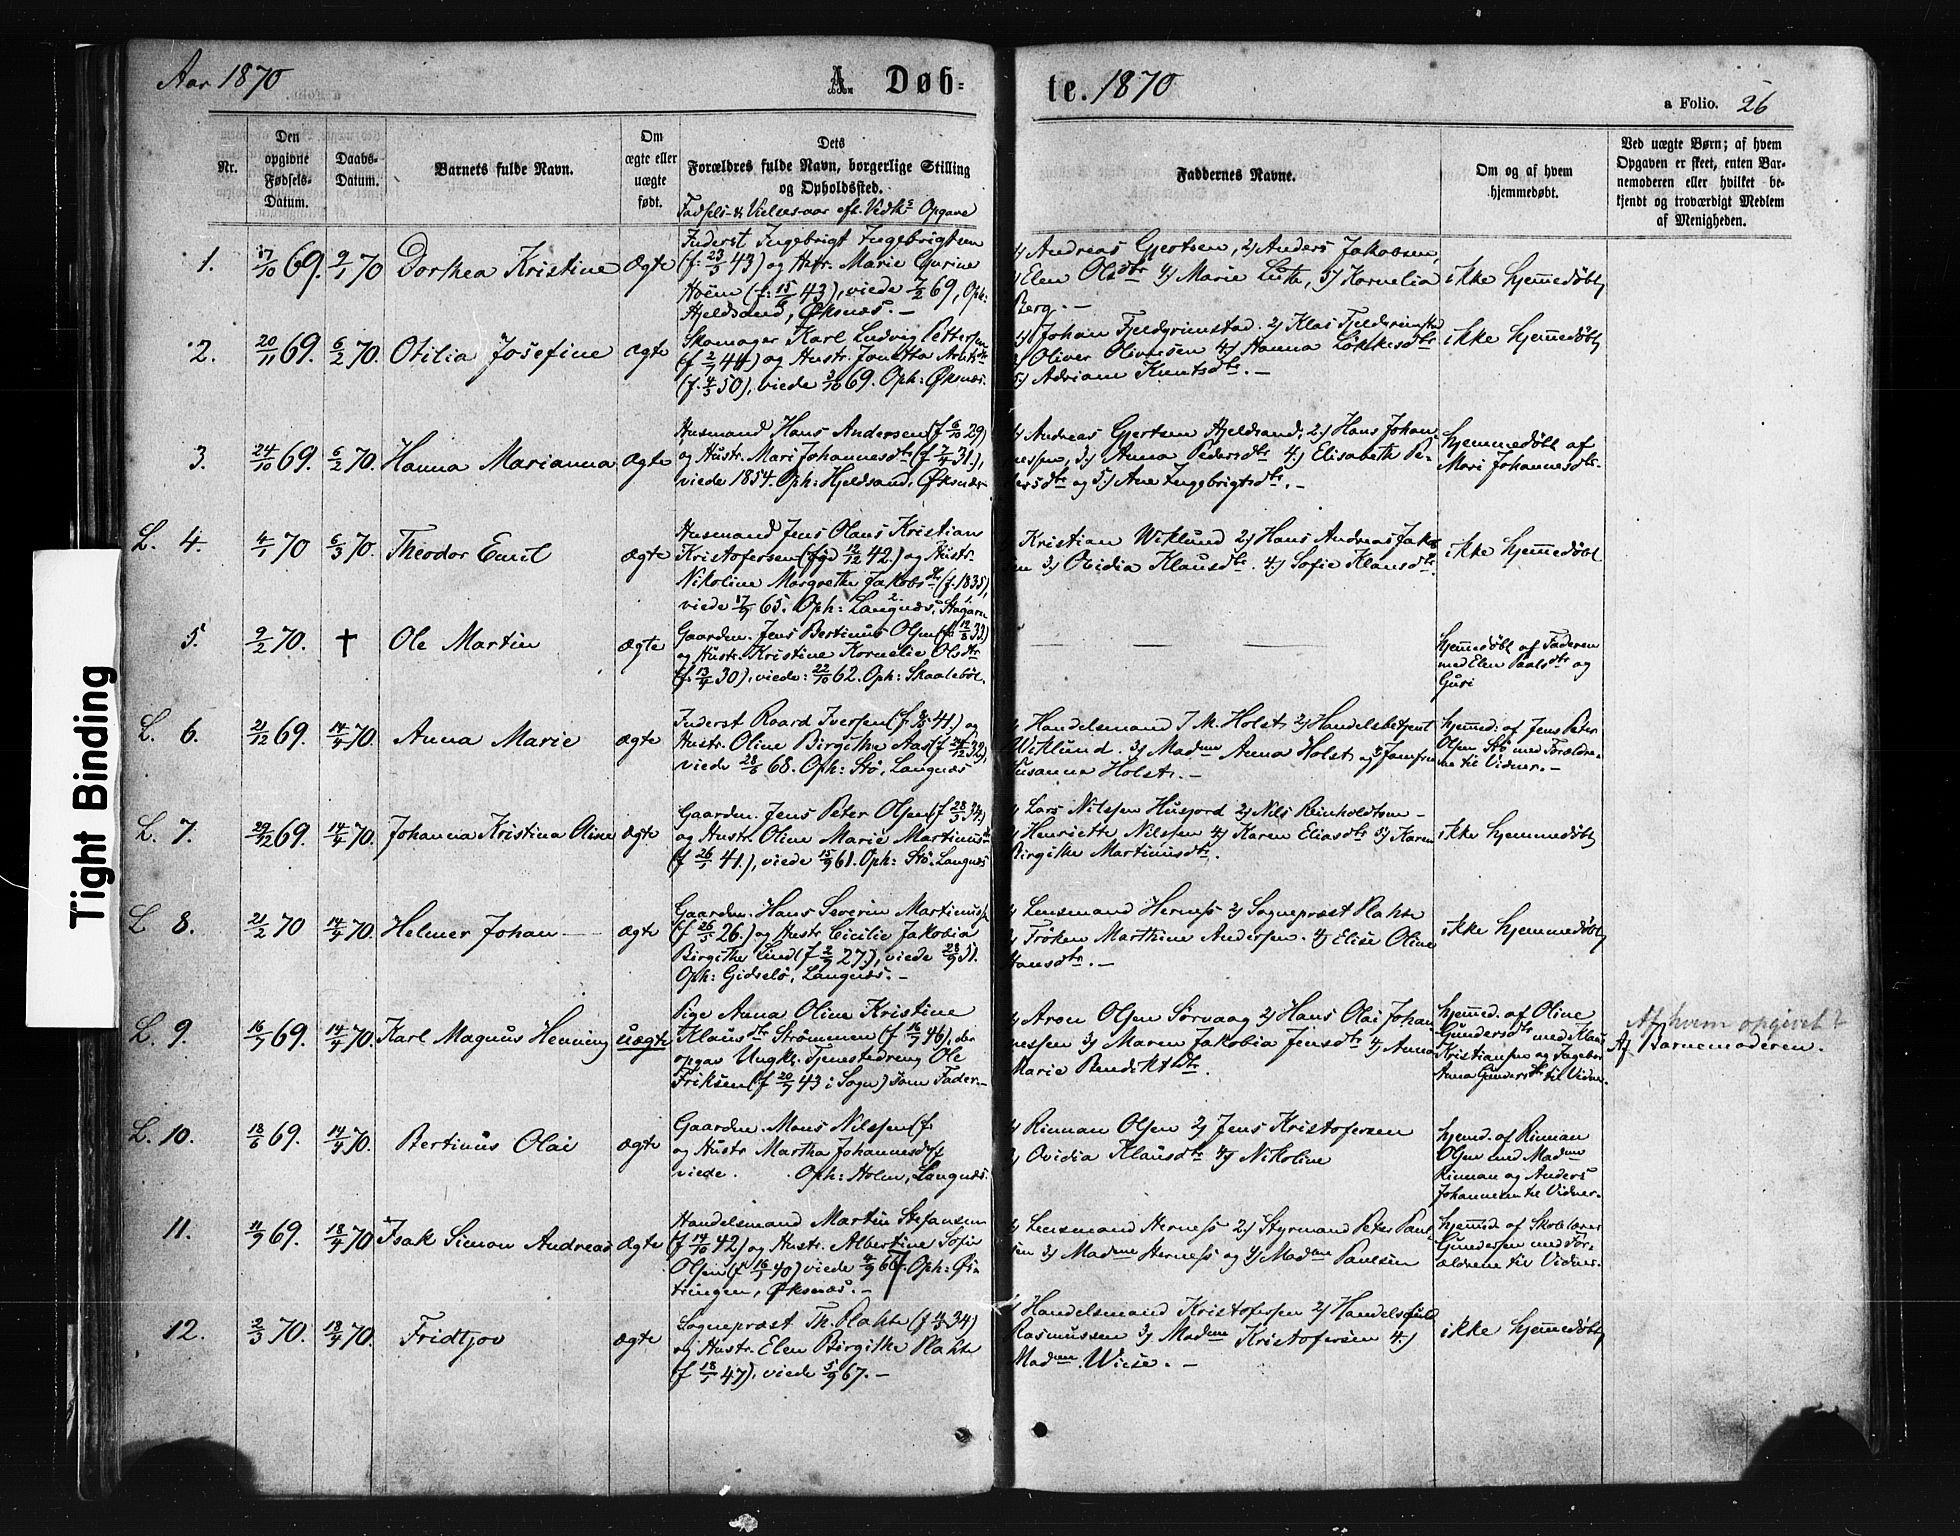 Aar 1870
A. Døb-
te. 1870
a Folio. 26
Nr.
Den
opgivne
Fødsels-
Datum.
Daabs-
Datum.
Barnets fulde Navn.
Om
ægte eller
uægte
født.
Dets
Forældres fulde Navn, borgerlige Stilling
og Opholdssted.
Fødsels- & Vielses-aar eft. Vedk.s Opgave
Faddernes Navne.
Om og af hvem
hjemmedøbt.
Ved uægte Børn; af hvem
Opgaven er skeet, enten Bar-
nemoderen eller hvilket be-
kjendt og troværdigt Medlem
af Menigheden.
1. 17/10 69. 9/1 70 Dorthea Kristine ægte
Inderst Ingebrigt Ingebrigtsen
(f. 23/5 43) og Hstr. Marie Gurine
Hoëm (f: 15/6 43), viede 7/2 69, Oph:
Hjeldsand, Øksnæs. -
1) Andreas Gjertsen, 2) Anders Jakobsen,
3) Elen Olsdtr 4) Marie Luth, 5) Kornelia
Berg. -
ikke hjemmedøbt
2. 20/11 69. 6/2 70. Otilia Josefine ægte
Skomager Karl Ludvig Pettersen
(f 2/7 44) og Hustr. Jonetta
(f. 4/3 50), viede 3/10 69. Oph: Øksnæs.
1) Johan Fjeldgrimstad. 2) Klas Fjeldgrimstad
3) Oliver Oliversen 4) Hanna Løkkesdtr
5) Adriane Knutsdtr. -
ikke hjemmedøbt
3. 24/10 69. 6/2 70. Hanna Marianna ægte
Husmand Hans Andersen (f 6/10 29)
og Hustr. Mari Johannesdtr (f 7/4 31),
viede 1854. Oph: Hjeldsand, Øksnæs
1) Andreas Gjertsen Hjeldsand, 2) Hans Johan-
nessen, 3) Anna Pedersdtr 4) Elisabeth Pe-
dersdtr og 5) Ane Ingebrigtsdtr. -
hjemmedøbt af
Mari Johannesdtr.
L. 4. 4/1 70 6/3 70. Theodor Emil ægte
Husmand Jens Olaus Kristian
Kristofersen (fød 12/12 42.) og Hustr.
Nikoline Margrethe Jakobsdtr (f. 1835),
viede 17/9 65. Oph: Langnæs,
1) Kristian Wiklund 2) Hans Andreas Jakob-
sen 3) Ovidia Klausdtr. 4) Sofie Klausdtr.
ikke hjemmedøbt
5. 9/2 70. † Ole Martin ægte
Gaardm. Jens Bertinus Olsen (f. 12/8 33.)
og Hustr. Kristine Kornelie Olsdtr
(f. 13/4 30), viede: 22/10 62. Oph: Skaalebøl.
hjemmedøbt af Faderen
med Elen Paalsdtr og
Guri
L. 6. 21/12 69. 14/4 70. Anna Marie ægte
Inderst Roard Iversen (f 41.) og
Hustr. Oline Birgithe Aas (f 32),
viede 28/6 68. Oph: Stø, Langnæs
1) Handelsmand J. M. Holst 2) Handelsbetjent
Wiklund. 3) Madme Anna Holst og Jomfru
Susanna Holst. -
hjemmed: af Jens Peter
Olsen Stø med Forældre-
ne til Vidner. -
L. 7. 29/12 69. 14/4 70. Johanna Kristina Oline ægte
Gaardm. Jens Peter Olsen (f 28/5 34)
og Hustr. Oline Marie Martinusdtr
(f 26/1 41.), viede 15/9 61. Oph: Stø. Langnæs
1) Lars Nilssen Husjord 2) Nils Reinholdtsen -
3) Henriette Nilssen 4) Karen Eliasdtr 5) Karen
Birgithe Martinusdtr.
ikke hjemmedøbt
L 8. 21/2 70 14/4 70. Helmer Johan ægte
Gaardm. Hans Severin Martinussen
(f. 26/5 26.) og Hustr Cicilie Jakobia
Birgithe Lund (f 2/9 27.), viede 28/9 51.
Oph: Gidselø, Langnæs. -
1) Lensmand Herness 2) Sogneprest Plahte
3) Frøken Marthine Andersen. 4) Elise Oline
Hansdtr. -
ikke hjemmedøbt
L. 9. 16/7 69. 14/4 70. Karl Magnus Henning uægte
Pige Anna Oline Kristine
Klausdtr Strømmen (f 16/7 46), der
opgav Ungk. Tjenstedreng Ole
Eriksen (f 20/7 43 i Sogn) som Fader -
1) Aron Olsen Sørvaag 2) Hans Olai Johan-
nessen 3) Maren Jakobia Jensdtr 4) Anna
Marie Bendiktsdtr.
hjemmed. af Oline
Gundersdtr med Klaus
Kristiansen og Ingeborg
Anna Gundersdtr til Vidner.
Af hvem opgivet?
Af Barnemoderen.
L. 10. 18/6 69. 14/4 70. Bertinus Olai ægte
Gaardm. Mons Nilssen (f.
og Hustr Martha Johannesd (f.
viede. Oph: Holm, Langnæs.
1) Rinnan Olsen 2) Jens Kristofersen
3) Ovidia Klausdtr 4) Nikoline
hjemd. af Rinnan
Olsen med Madme
Rinnan og Anders
Johannesen til Vidner.
11. 11/9 69. 18/4 70 Isak Simon Andreas ægte
Handelsmand Martin Stefansen
(f 14/10 42) og Hustr. Albertine Sofie
Olsen (f 16/7 40) viede 4/9 67. Oph: Øs
tringen, Øksnæs. -
1) Lensmand Herness 2) Styrmand Peter Paul-
sen 3) Madme Herness og 4) Madme Paulsen
hjemmed. af Skolelærer
Gundersen med For-
ældrene til Vidner.
12. 2/3 70. 18/4 70. Fridtjov ægte
Sogneprest Th. Plahte (f 34)
og Hustr. Elen Birgithe Plahte
(f 18/1 47), viede 5/9 67. -
1) Handelsmand Kristofersen 2) Handelsfuld
Rasmussen 3) Madme Kristofersen 4)
Madme. Wiese. -
ikke hjemmedøbt
Tight Binding